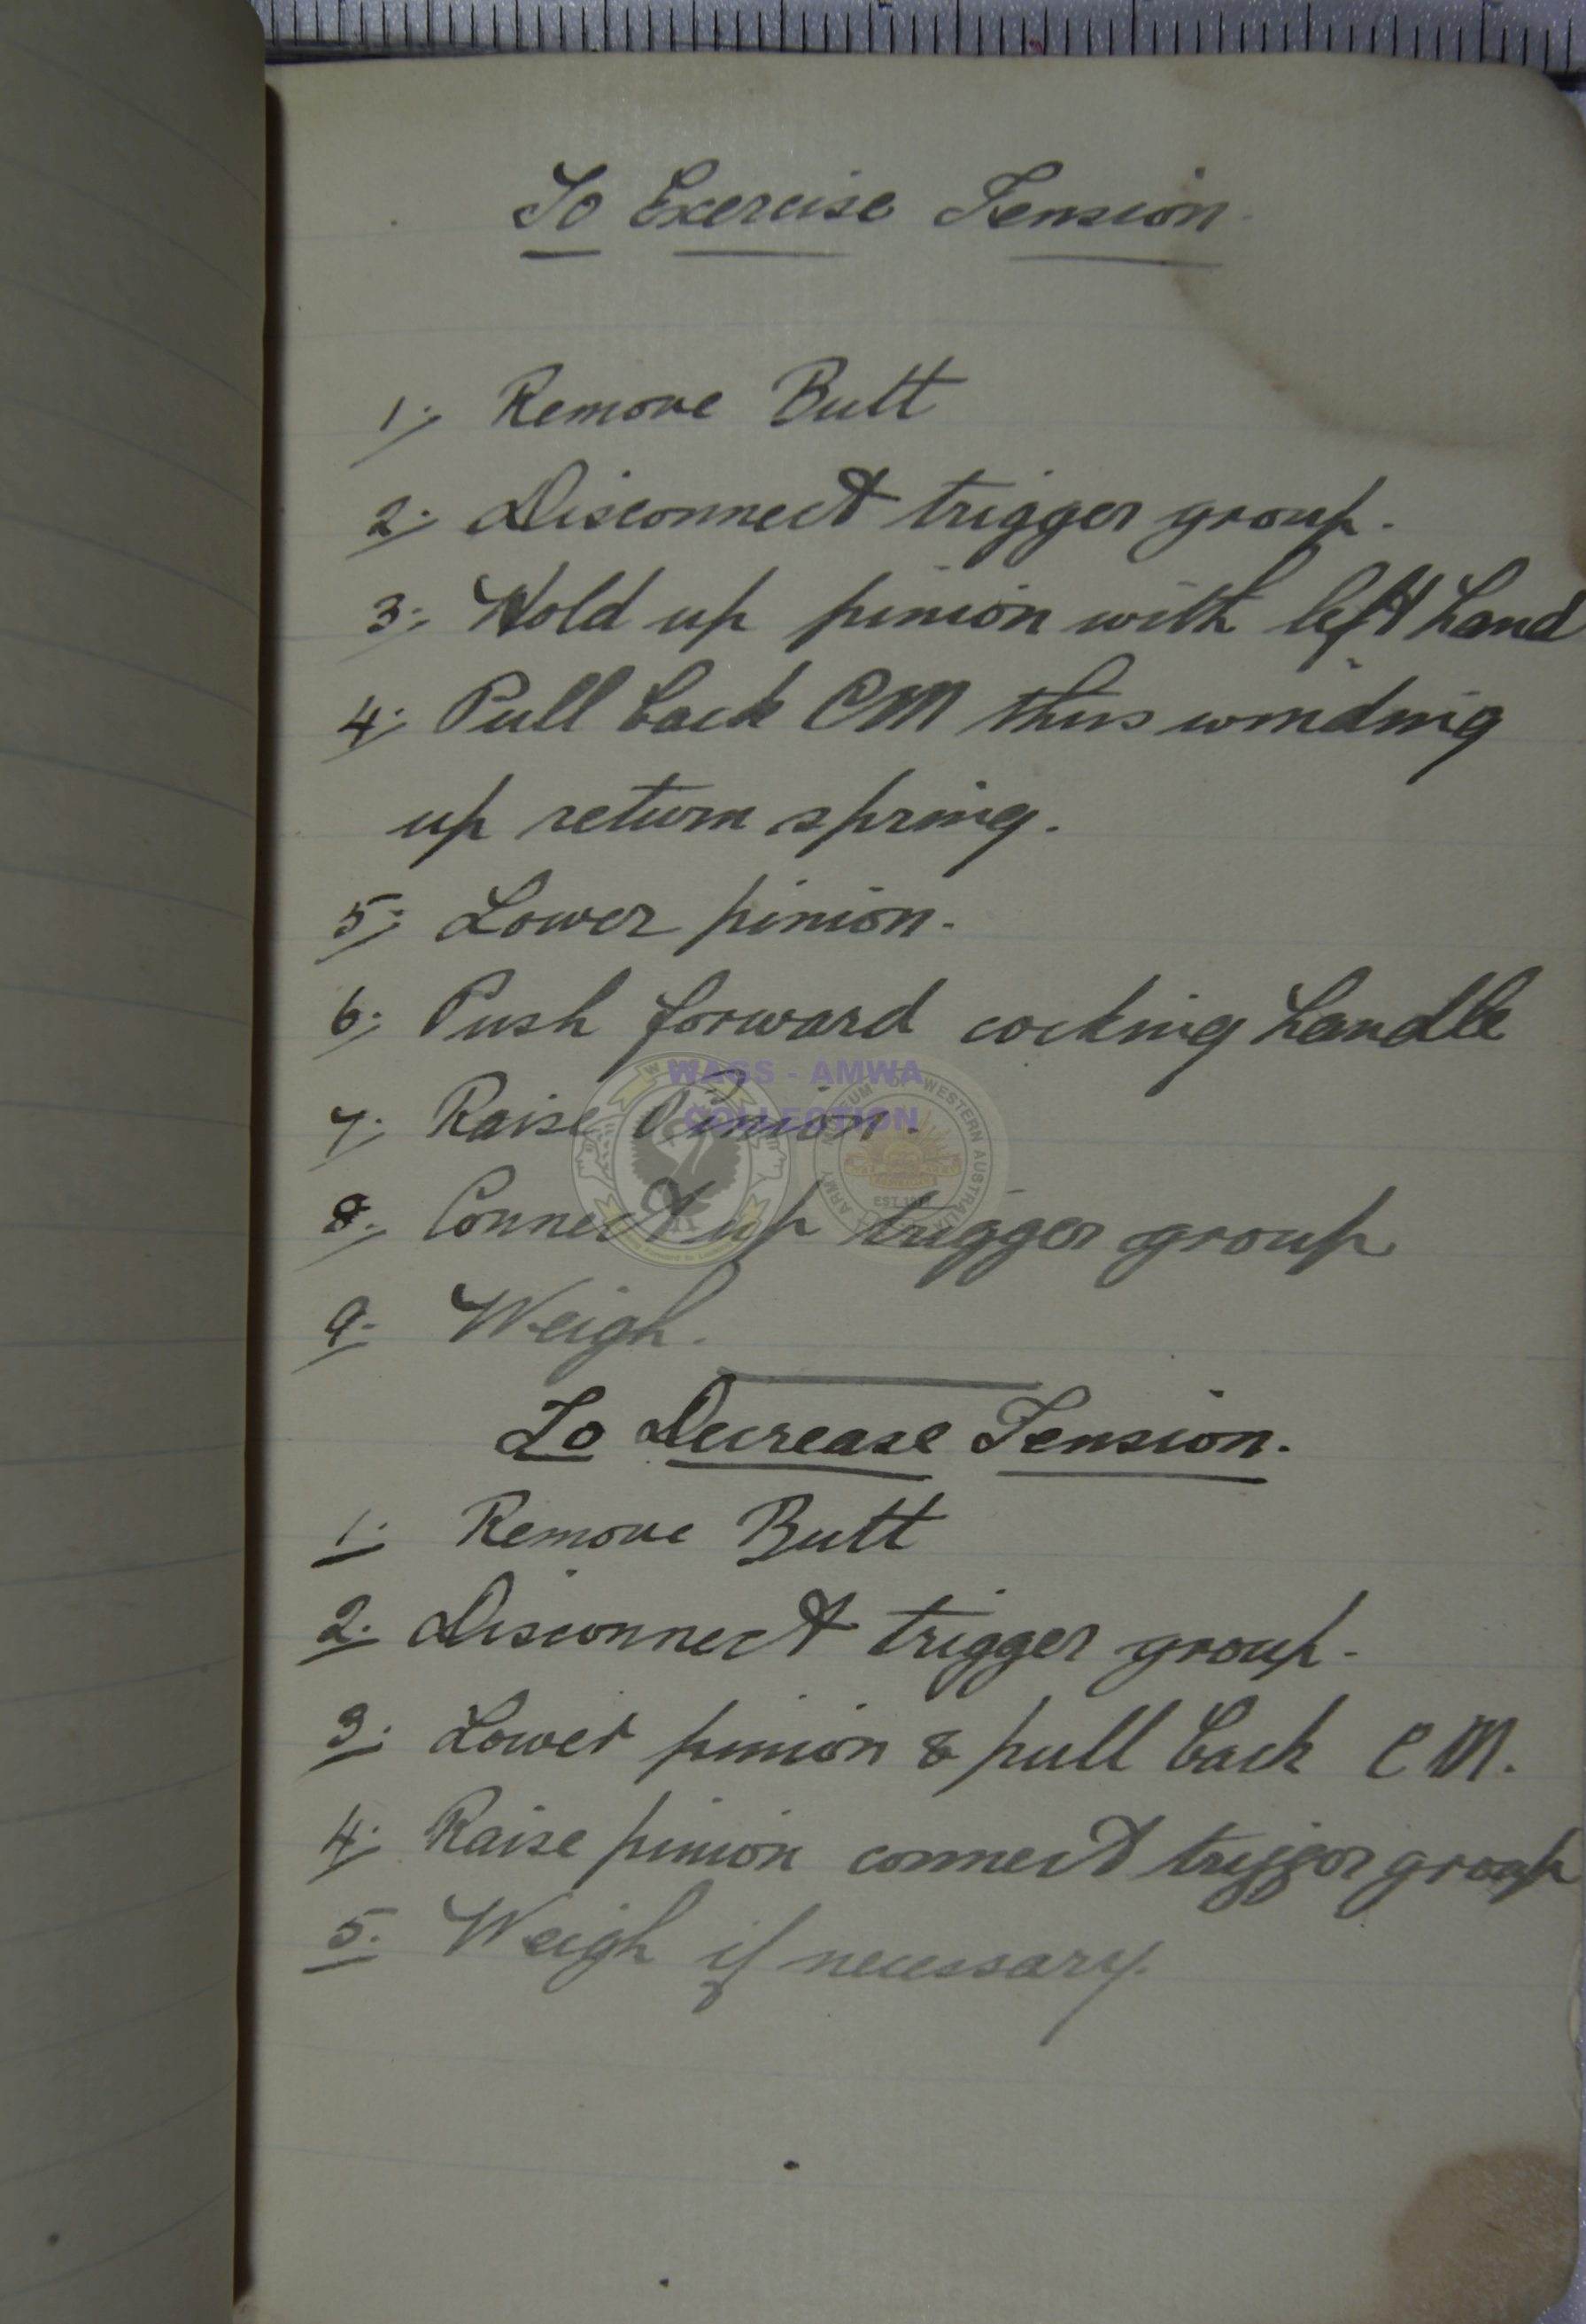 To Exercise Tension.
1. Remove Butt
2. Disconnect trigger group.
3. Hold up pinion with left hand
4. Pull back CM thus winding
up return spring.
5. Lower pinion.
6. Push forward cocking handle
WAGS - AMWA
COLLECTION
7. Raise Pinion.
8. Connect up trigger group
9. Weigh.
To Decrease Tension.
1. Remove Butt
2. Disconnect trigger group.
3. Lower pinion & pull back CM.
4. Raise pinion connect trigger group
5. Weigh if necessary.